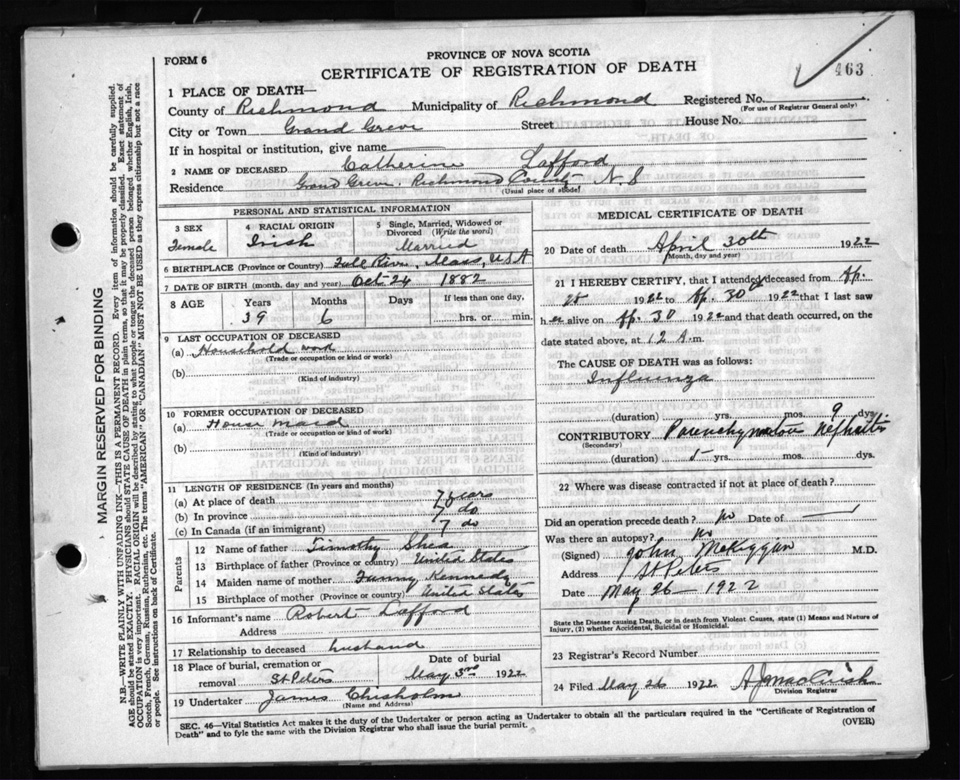 FORM 6
PROVINCE OF NOVA SCOTIA
CERTIFICATE OF REGISTRATION OF DEATH
463
1 PLACE OF DEATH—
County of Richmond Municipality of Richmond Registered No.
(For use of Registrar General only)
City or Town Grand Greve Street House No.
If in hospital or institution, give name
2 NAME OF DECEASED Catherine Lafford
Residence Grand Greve, Richmond County N.S
(Usual place of abode)
PERSONAL AND STATISTICAL INFORMATION
3 SEX 4 RACIAL ORIGIN 5 Single, Married, Widowed or Divorced (Write the word)
Female Irish Married
6 BIRTHPLACE (Province or Country) Fall River, Mass, USA
7 DATE OF BIRTH (month, day and year) Oct 24 1882
8 AGE Years Months Days If less than one day,
39 6 hrs. or min.
9 LAST OCCUPATION OF DECEASED
(a) Household work
(Trade or occupation or kind of work)
(b)
(Kind of industry)
10 FORMER OCCUPATION OF DECEASED
(a) House maid
(Trade or occupation or kind of work)
(b)
(Kind of industry)
11 LENGTH OF RESIDENCE (In years and months)
(a) At place of death 7 years
(b) In province 7 do
(c) In Canada (if an immigrant) 7 do
Parents
12 Name of father Timothy Shea
13 Birthplace of father (Province or country) United States
14 Maiden name of mother Fanny Kennedy
15 Birthplace of mother (Province or country) United States
16 Informant's name Robert Lafford
Address
17 Relationship to deceased husband
18 Place of burial, cremation or removal St Peters Date of burial May 3rd 1922
19 Undertaker James Chisholm
(Name and Address)
MEDICAL CERTIFICATE OF DEATH
20 Date of death April 30th 1922
(Month, day and year)
21 I HEREBY CERTIFY, that I attended deceased from Ap.
28 1922 to Ap. 30 1922 that I last saw
her alive on Ap. 30 1922 and that death occurred, on the
date stated above, at 12 A.m.
The CAUSE OF DEATH was as follows:
Influenza
(duration) yrs. mos. 9 dys.
CONTRIBUTORY Parenchymatous Nephritis
(Secondary)
(duration) 5 yrs. mos. dys.
22 Where was disease contracted if not at place of death?
Did an operation precede death? No Date of
Was there an autopsy? No
(Signed) John McKiggan M.D.
Address St Peters
Date May 26 — 1922
State the Disease causing Death, or in death from Violent Causes, state (1) Means and Nature of Injury, (2) whether Accidental, Suicidal or Homicidal.
23 Registrar's Record Number
24 Filed May 26 1922
Division Registrar
SEC. 46—Vital Statistics Act makes it the duty of the Undertaker or person acting as Undertaker to obtain all the particulars required in the "Certificate of Registration of
Death" and to fyle the same with the Division Registrar who shall issue the burial permit. (OVER)
MARGIN RESERVED FOR BINDING
N.B.—WRITE PLAINLY WITH UNFADING INK—THIS IS A PERMANENT RECORD. Every item of information should be carefully supplied.
AGE should be stated EXACTLY. PHYSICIANS should STATE CAUSE OF DEATH in plain terms, so that it may be properly classified. Exact statement of
OCCUPATION is very important. RACIAL ORIGIN will be described by stating to what people or tongue the deceased person belonged whether English, Irish,
Scotch, French, German, Russian, Ruthenian, etc. The terms "AMERICAN" or "CANADIAN" MUST NOT BE USED as they express citizenship but not a race
or people. See instructions on back of Certificate.